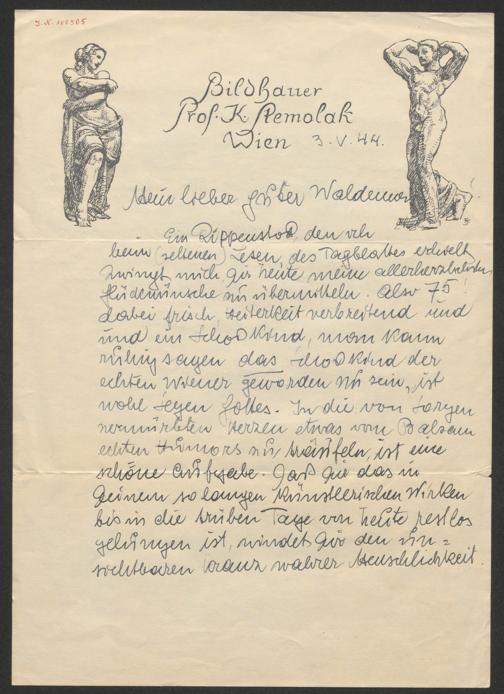 J.N. 200305
Bildhauer
Prof. K Stemolak
Wien 3.V.44.
Mein lieber guter Waldemar
Ein Rippenstoß, den ich
beim (seltenen) Lesen des Tagblattes erhielt
zwingt mich Dir heute meine allerherzlichsten
Glückwünsche zu übermitteln. Also 75!
dabei frisch, Heiterkeit verbreitend und
und ein Schoßkind, man kann
ruhig sagen das Schoßkind der
echten Wiener geworden zu sein, ist
wohl Segen Gottes. In die von Sorgen
zermürbten Herzen etwas vom Balsam
echten Humors zu träufeln, ist eine
schöne Aufgabe. Daß Dir das in
Deinem so langen künstlerischen Wirken
bis in die trüben Tage von heute restlos
gelungen ist, windet Dir den un=
sichtbaren Kranz wahrer Menschlichkeit.